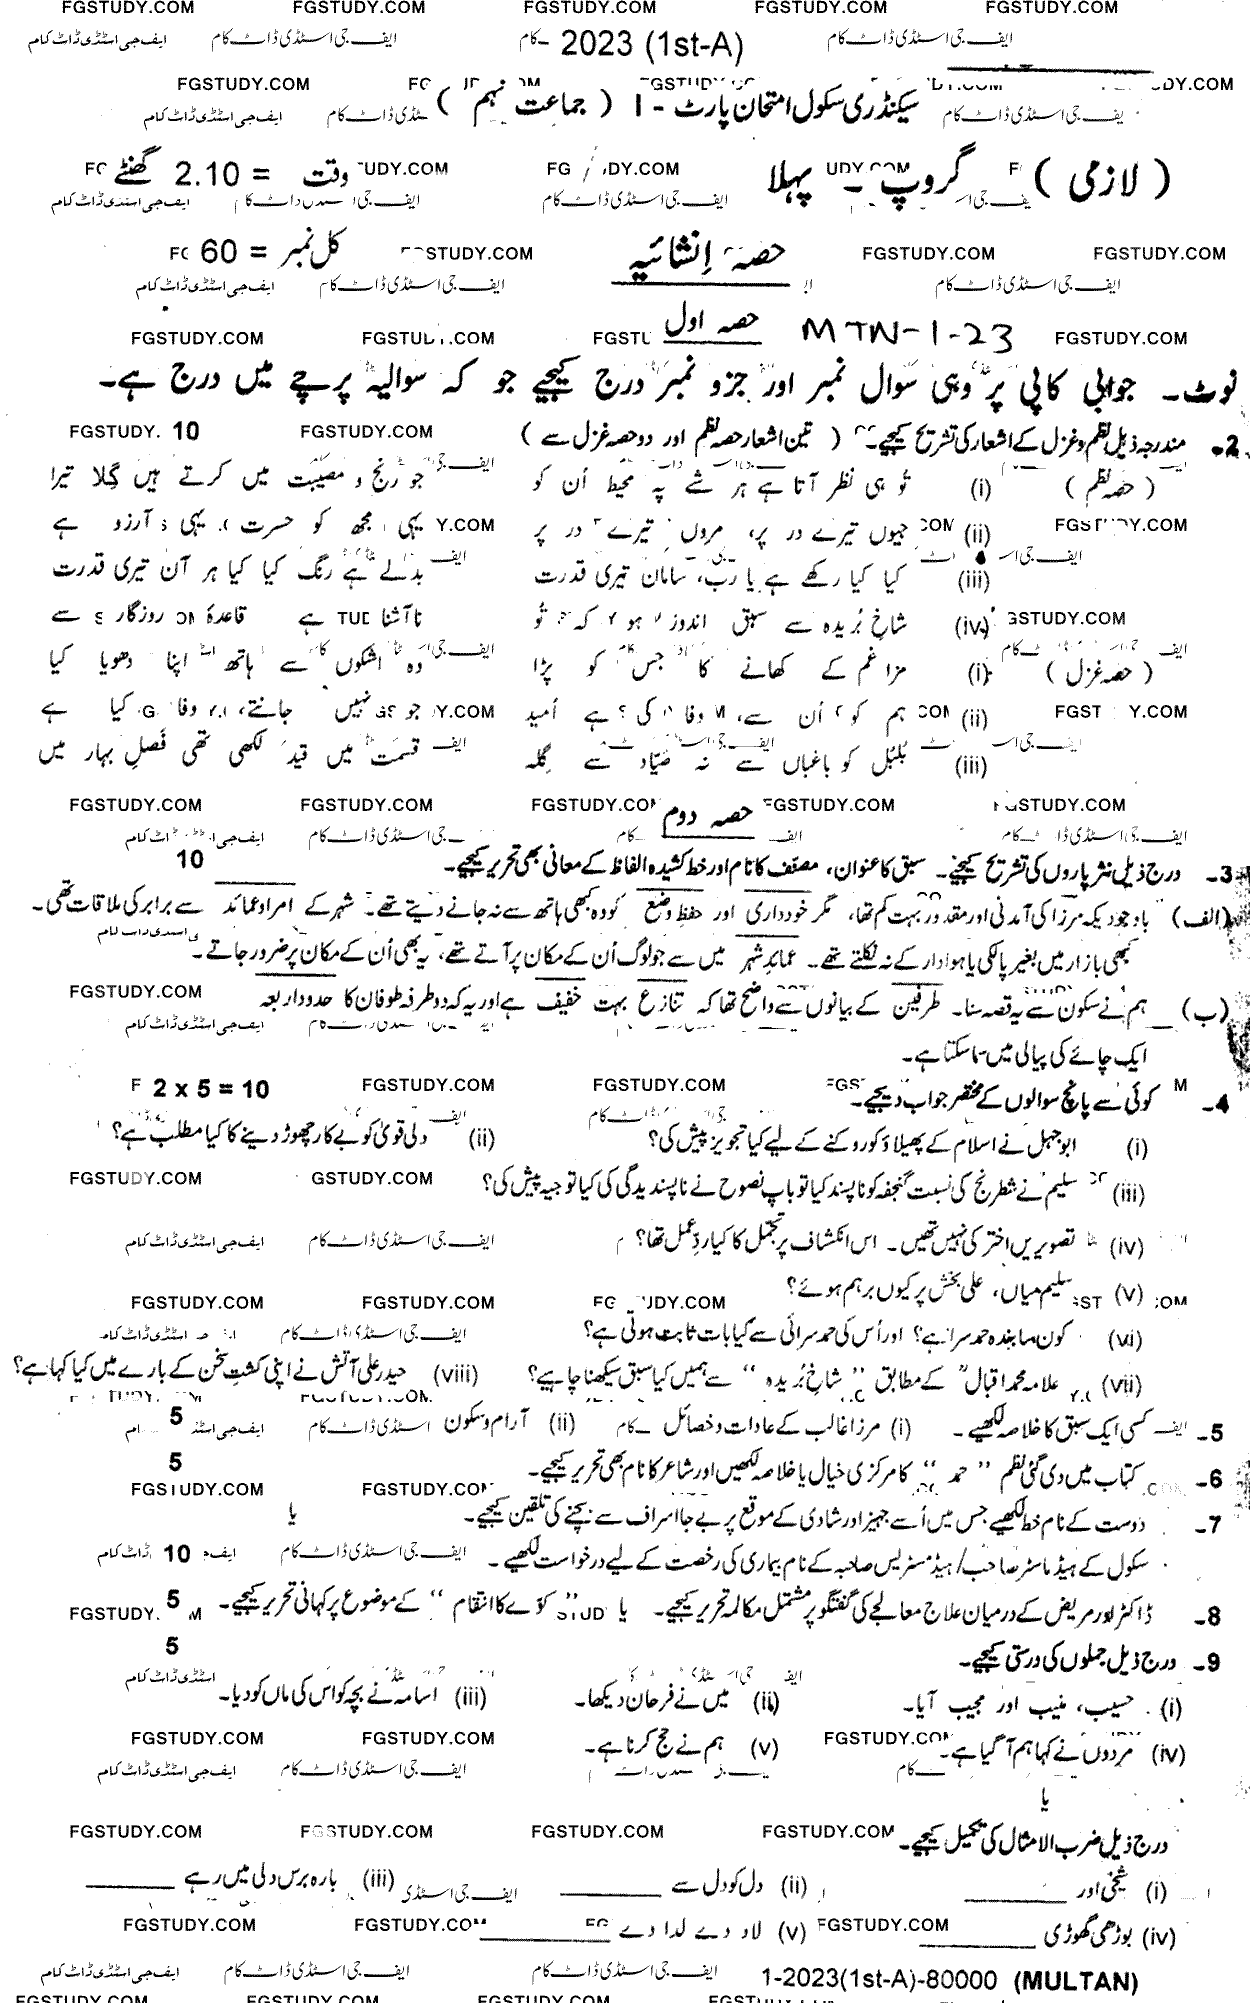 FGSTUDY.COM FGSTUDY.COM FGSTUDY.COM FGSTUDY.COM FGSTUDY.COM
2023 (1st-A)
سیکنڈری سکول امتحان پارٹ - I ( جماعت نہم )
( لازمی ) گروپ - پہلا وقت = 2.10 گھنٹے
حصہ اِنشائیہ کل نمبر = 60
حصہ اول MTN-1-23
نوٹ۔ جوابی کاپی پر وہی سوال نمبر اور جزو نمبر درج کیجیے جو کہ سوالیہ پرچے میں درج ہے۔
2- مندرجہ ذیل نظم و غزل کے اشعار کی تشریح کیجیے۔ ( تین اشعار حصہ نظم اور دو حصہ غزل سے ) 10
( حصہ نظم ) (i) تُو ہی نظر آتا ہے ہر شے پہ محیط اُن کو جو رنج و مصیبت میں کرتے ہیں گِلا تیرا
(ii) جیوں تیرے در پر، مروں تیرے در پر یہی مجھ کو حسرت یہی آرزو ہے
(iii) کیا کیا رکھے ہے یا رب، سامان تیری قدرت بدلے ہے رنگ کیا کیا ہر آن تیری قدرت
(iv) شاخِ بُریدہ سے سبق اندوز ہو کہ تُو ناآشنا ہے قاعدۂ روزگار سے
( حصہ غزل ) (i) مزا غم کے کھانے کا جس کو پڑا وہ اشکوں سے ہاتھ اپنا دھویا کیا
(ii) ہم کو اُن سے، وفا کی ہے اُمید جو نہیں جانتے، وفا کیا ہے
(iii) بُلبُل کو باغباں سے نہ صَیّاد سے گلہ قسمت میں قید لکھی تھی فَصلِ بہار میں
حصہ دوم
3- درج ذیل نثر پاروں کی تشریح کیجئے۔ سبق کا عنوان، مصنف کا نام اور خط کشیدہ الفاظ کے معانی بھی تحریر کیجیے۔ 10
(الف) باوجودیکہ مرزا کی آمدنی اور مقدور بہت کم تھا، مگر خودداری اور حفظِ وضع کو وہ کبھی ہاتھ سے نہ جانے دیتے تھے۔ شہر کے امرا و عمائد سے برابر کی ملاقات تھی۔
کبھی بازار میں بغیر پالکی یا ہوادار کے نہ نکلتے تھے۔ عمائدِ شہر میں سے جو لوگ اُن کے مکان پر آتے تھے، یہ بھی اُن کے مکان پر ضرور جاتے۔
(ب) ہم نے سکون سے یہ قصہ سنا۔ طرفین کے بیانوں سے واضح تھا کہ تنازع بہت خفیف ہے اور یہ کہ دو طرفہ طوفان کا حدود اربعہ
ایک چائے کی پیالی میں سما سکتا ہے۔
4- کوئی سے پانچ سوالوں کے مختصر جواب دیجیے۔ 2 x 5 = 10
(i) ابو جہل نے اسلام کے پھیلاؤ کو روکنے کے لیے کیا تجویز پیش کی؟ (ii) دلی قویٰ کو بے کار چھوڑ دینے کا کیا مطلب ہے؟
(iii) سلیم نے شطرنج کی نسبت گنجفہ کو ناپسند کیا تو باپ نصوح نے ناپسندیدگی کی کیا توجیہ پیش کی؟
(iv) تصویریں اختر کی نہیں تھیں۔ اس انکشاف پر تجمل کا کیا ردِعمل تھا؟
(v) سلیم میاں، علی بخش پر کیوں برہم ہوئے؟
(vi) کون سا بندہ حمد سرا ہے؟ اور اُس کی حمد سرائی سے کیا بات ثابت ہوتی ہے؟
(vii) علامہ محمد اقبالؒ کے مطابق "شاخِ بُریدہ" سے ہمیں کیا سبق سیکھنا چاہیے؟ (viii) حیدر علی آتش نے اپنی کشتِ سخن کے بارے میں کیا کہا ہے؟
5- کسی ایک سبق کا خلاصہ لکھیے۔ (i) مرزا غالب کے عادات و خصائل (ii) آرام و سکون 5
6- کتاب میں دی گئی نظم "حمد" کا مرکزی خیال یا خلاصہ لکھیں اور شاعر کا نام بھی تحریر کیجیے۔ 5
7- دوست کے نام خط لکھیے جس میں اُسے جہیز اور شادی کے موقع پر بے جا اسراف سے بچنے کی تلقین کیجیے۔ یا
سکول کے ہیڈ ماسٹر صاحب / ہیڈ مسٹریس صاحبہ کے نام بیماری کی رخصت کے لیے درخواست لکھیے۔ 10
8- ڈاکٹر اور مریض کے درمیان علاج معالجے کی گفتگو پر مشتمل مکالمہ تحریر کیجیے۔ یا "کوّے کا انتقام" کے موضوع پر کہانی تحریر کیجیے۔ 5
9- درج ذیل جملوں کی درستی کیجیے۔ 5
(i) حسیب، منیب اور مجیب آیا۔ (ii) میں نے فرحان دیکھا۔ (iii) اسامہ نے بچہ کو اس کی ماں کو دیا۔
(iv) مردوں نے کہا ہم آ گیا ہے۔ (v) ہم نے حج کرنا ہے۔
یا
درج ذیل ضرب الامثال کی تکمیل کیجیے۔
(i) شیخی اور ________ (ii) دل کو دل سے ________ (iii) بارہ برس دلی میں رہے ________
(iv) بوڑھی گھوڑی ________ (v) لاد دے لدا دے ________
1-2023(1st-A)-80000 (MULTAN)